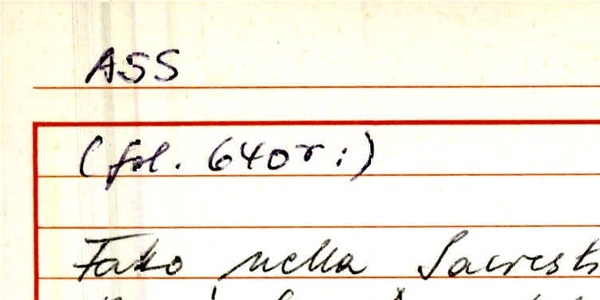 ASS
(fol. 640r:)
Fatto nella Sacrest